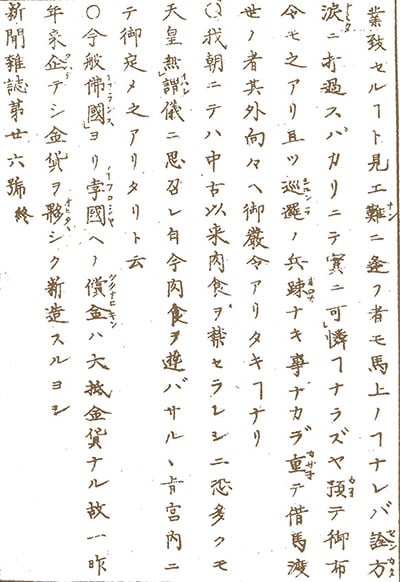 業致セルヿト見エ難ニ逢フ者モ馬上ノヿナレバ詮方
涙ニ打過スバカリニテ実ニ可憐ヿナラズヤ預テ御布
令モ之アリ且ツ巡邏ノ兵疎ナキ事ナカラ重テ借馬渡
世ノ者其外向々ヘ御厳令アリタキヿナリ
〇我朝ニテハ中古以来肉食ヲ禁セラレシニ恐多クモ
天皇無謂儀ニ思召レ自今肉食ヲ遊バサルヽ旨宮内ニ
テ御定メ之アリタリト云
〇今般佛國ヨリ孛國ヘノ償金ハ大抵金貨ナル故一昨
年来企テシ金貨ヲ夥シク新造スルヨシ
新聞雑誌第廿六號 終